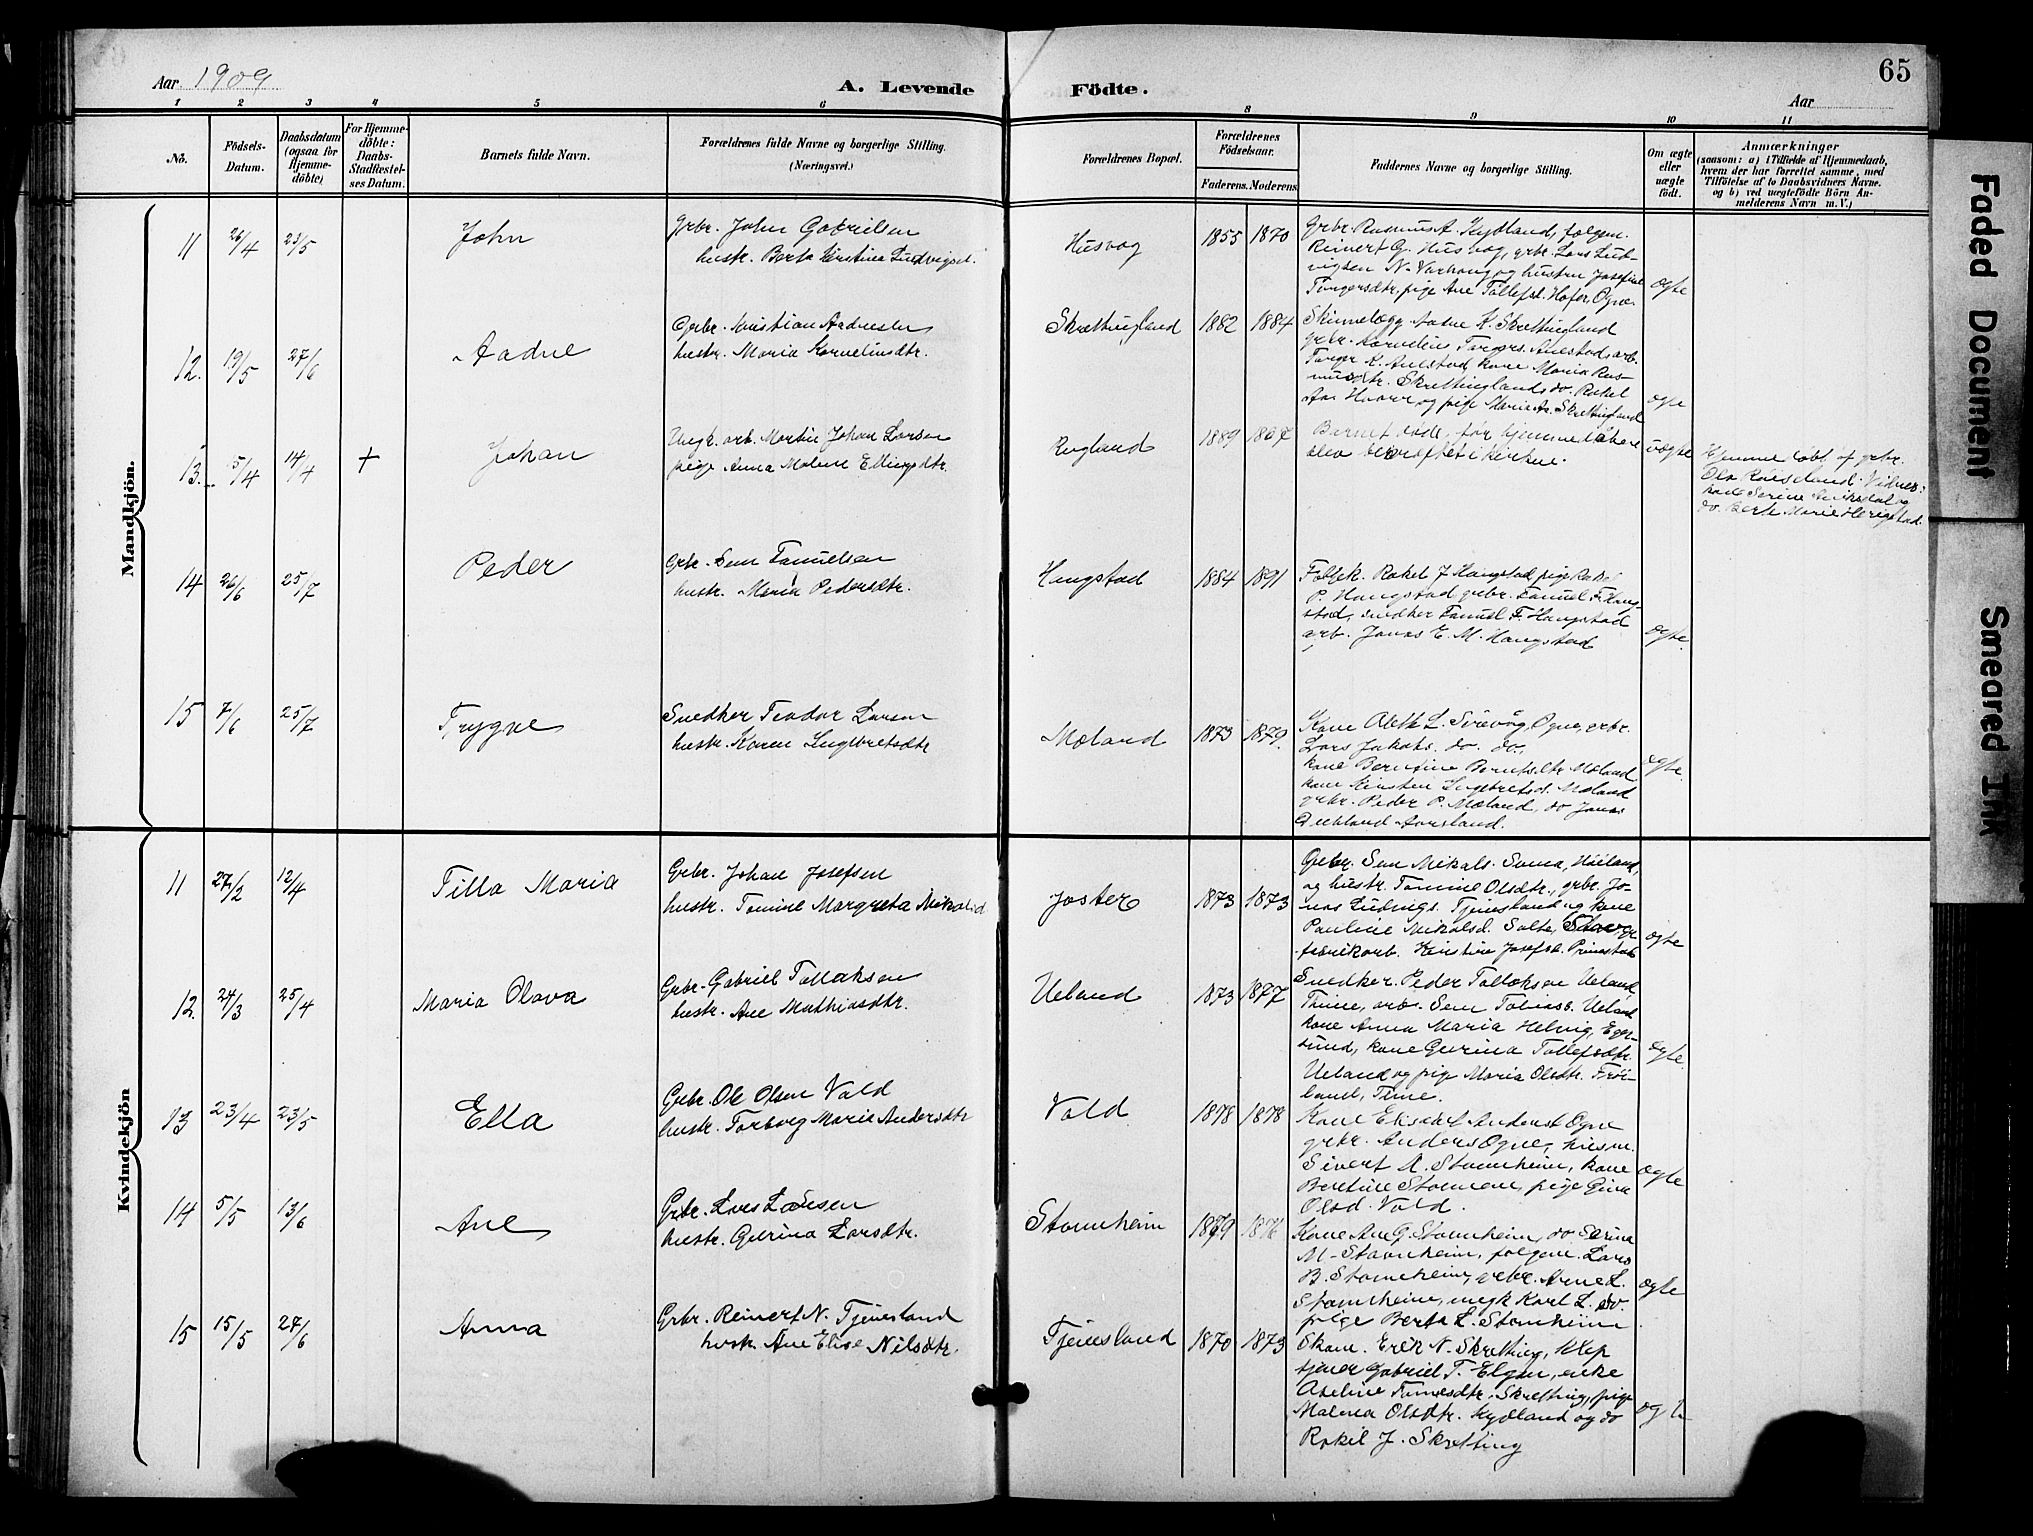 65
Aar 1909
A. Levende Födte.
Aar
1 2 3 4 5 6 8 9 10 11
Nö.
Födsels-Datum.
Daabsdatum (ogsaa for Hjemme-döbte)
For Hjemme-döbte: Daabs-Stadfæstel-ses Datum.
Barnets fulde Navn.
Forældrenes fulde Navne og borgerlige Stilling. (Næringsvei.)
Forældrenes Bopæl.
Forældrenes Födselsaar.
Faderens. Moderens.
Faddernes Navne og borgerlige Stilling.
Om ægte eller uægte födt.
Anmærkninger
(saasom: a) i Tilfælde af Hjemmedaab,
hvem der har forrettet samme, med
Tilföielse af to Daabsvidners Navne.
og b) ved uægtefödte Börn An-
melderens Navn m. V.)
Mandkjön.
11 26/4 23/5 John
Grbr. John Gabrielsen
hustr. Berta Kristina Ludvigsd.
Husvog 1855 1870
Grbr. Rasmus A. Kydland, følgem.
Reinert G. Husvog, grbr. Lars Lud-
vigsen N. Varhaug og hustru Josefine
Torgersdtr, pige Ane Tollefsd. Hofer, Ogne
ægte
12. 19/5 27/6 Aadne
Grbr. Kristian Aadnesen
hustr. Maria Korneliusdtr.
Skrettingland 1882 1884
Skinnelægg. Aadne K. Skrettingland
grbr. Kornelius Torgers. Auestad, arb.
Torger K. Auestad kone Maria Ras-
musdtr. Skrettingland, do. Rakel
og pige Marie A. Skrettingland
ægte
13. 5/4 14/4 + Johan
Ungk. arb. Martin Johan Larsen
pige Anna Malene Ellingsdtr.
1889 1887
Barnet döde, för hjemmedaaben
blev bekræftet i kirken.
uægte
Hjemmedöbt af grbr.
Ola Vidner:
kone Serine
do. Berte Marie
14 26/6 25/7 Peder
Grbr. Sem Tanuelsen
hustr. Maria Pedersdtr.
Haugstad 1884 1891
Rakel J Haugstad pige Rakel
P. Haugstad grbr. Fanuel F. Haug-
stad, snedker Fanuel F. Haugstad
arb. Jonas E. M. Haugstad
ægte.
15 7/6 25/7 Trygve
Snedker Teodor Larsen
hustr. Karen Ingebretsdtr
Mæland 1873 1879.
Kone Aleth L. Sirevåg Ogne, grbr.
Lars Jakobs. do. do.,
kone Berntine Berntsdtr Mæland
kone Kirsten Ingebretsd. Mæland
grbr. Peder P. Mæland, do Jonas
ægte.
Kvindekjön
11 27/2 12/4 Tilla Maria
Grbr. Johan Josefsen
hustr. Tomine Margreta Nikolsd
Joster 1873 1873
Grbr. Sem Mikals. Soma, Höiland,
og hustr. Tomine Olsdtr., grbr. Jo-
nas Ludvigs. Tjensland og kone
Pauline Mikalsd. Salte,
fabrikarb. Kristine Josefsd.
ægte
12. 24/3 25/4 Maria Olava
Grbr. Gabriel Tollaksen
hustr. Ane Mathiasdtr.
Ueland 1873 1877
Snedker. Peder Tollaksen Ueland
Time, arb. Sem Tobias. Ueland
kone Anna Maria Helvig, Eger-
sund, kone Gurina Tollefsdtr.
Ueland og pige Maria Olsdtr. Fröi-
land, Time.
ægte
13 23/4 23/5 Ella
Grbr. Ole Olsen Vold
hustr. Torborg Maria Andersdtr
Vold 1878 1878
Kone Elisabet Andersd Ogne
grbr. Anders Ogne, husm.
Sivert A. Stomnheim, kone
Bertine pige Gina
Olsd. Vold.
ægte
14 5/5 13/6 Ane
Grbr. Lars Larsen
hustr. Gurina Larsdtr.
Stomnheim 1879
Kone Ane G. Stomnheim, do Serina
M. Stomnheim, følgem. Lars
B. Stomnheim, grbr. Arne L.
Stomnheim, ungk Karl L. do.
pige Berta L. Stomnheim
ægte
15 15/5 27/6 Anna
Grbr. Reinert N. Tjensland
hustr. Ane Elise Nilsdtr.
Tjensland 1870 1873
Skom. Erik N. Skretting, Klep
tjener Gabriel T. Elgan, enke
Skretting, pige
Malena Olsdtr. Kydland og do
Rakel J. Skretting
ægte
Faded Document
Smeared Ink